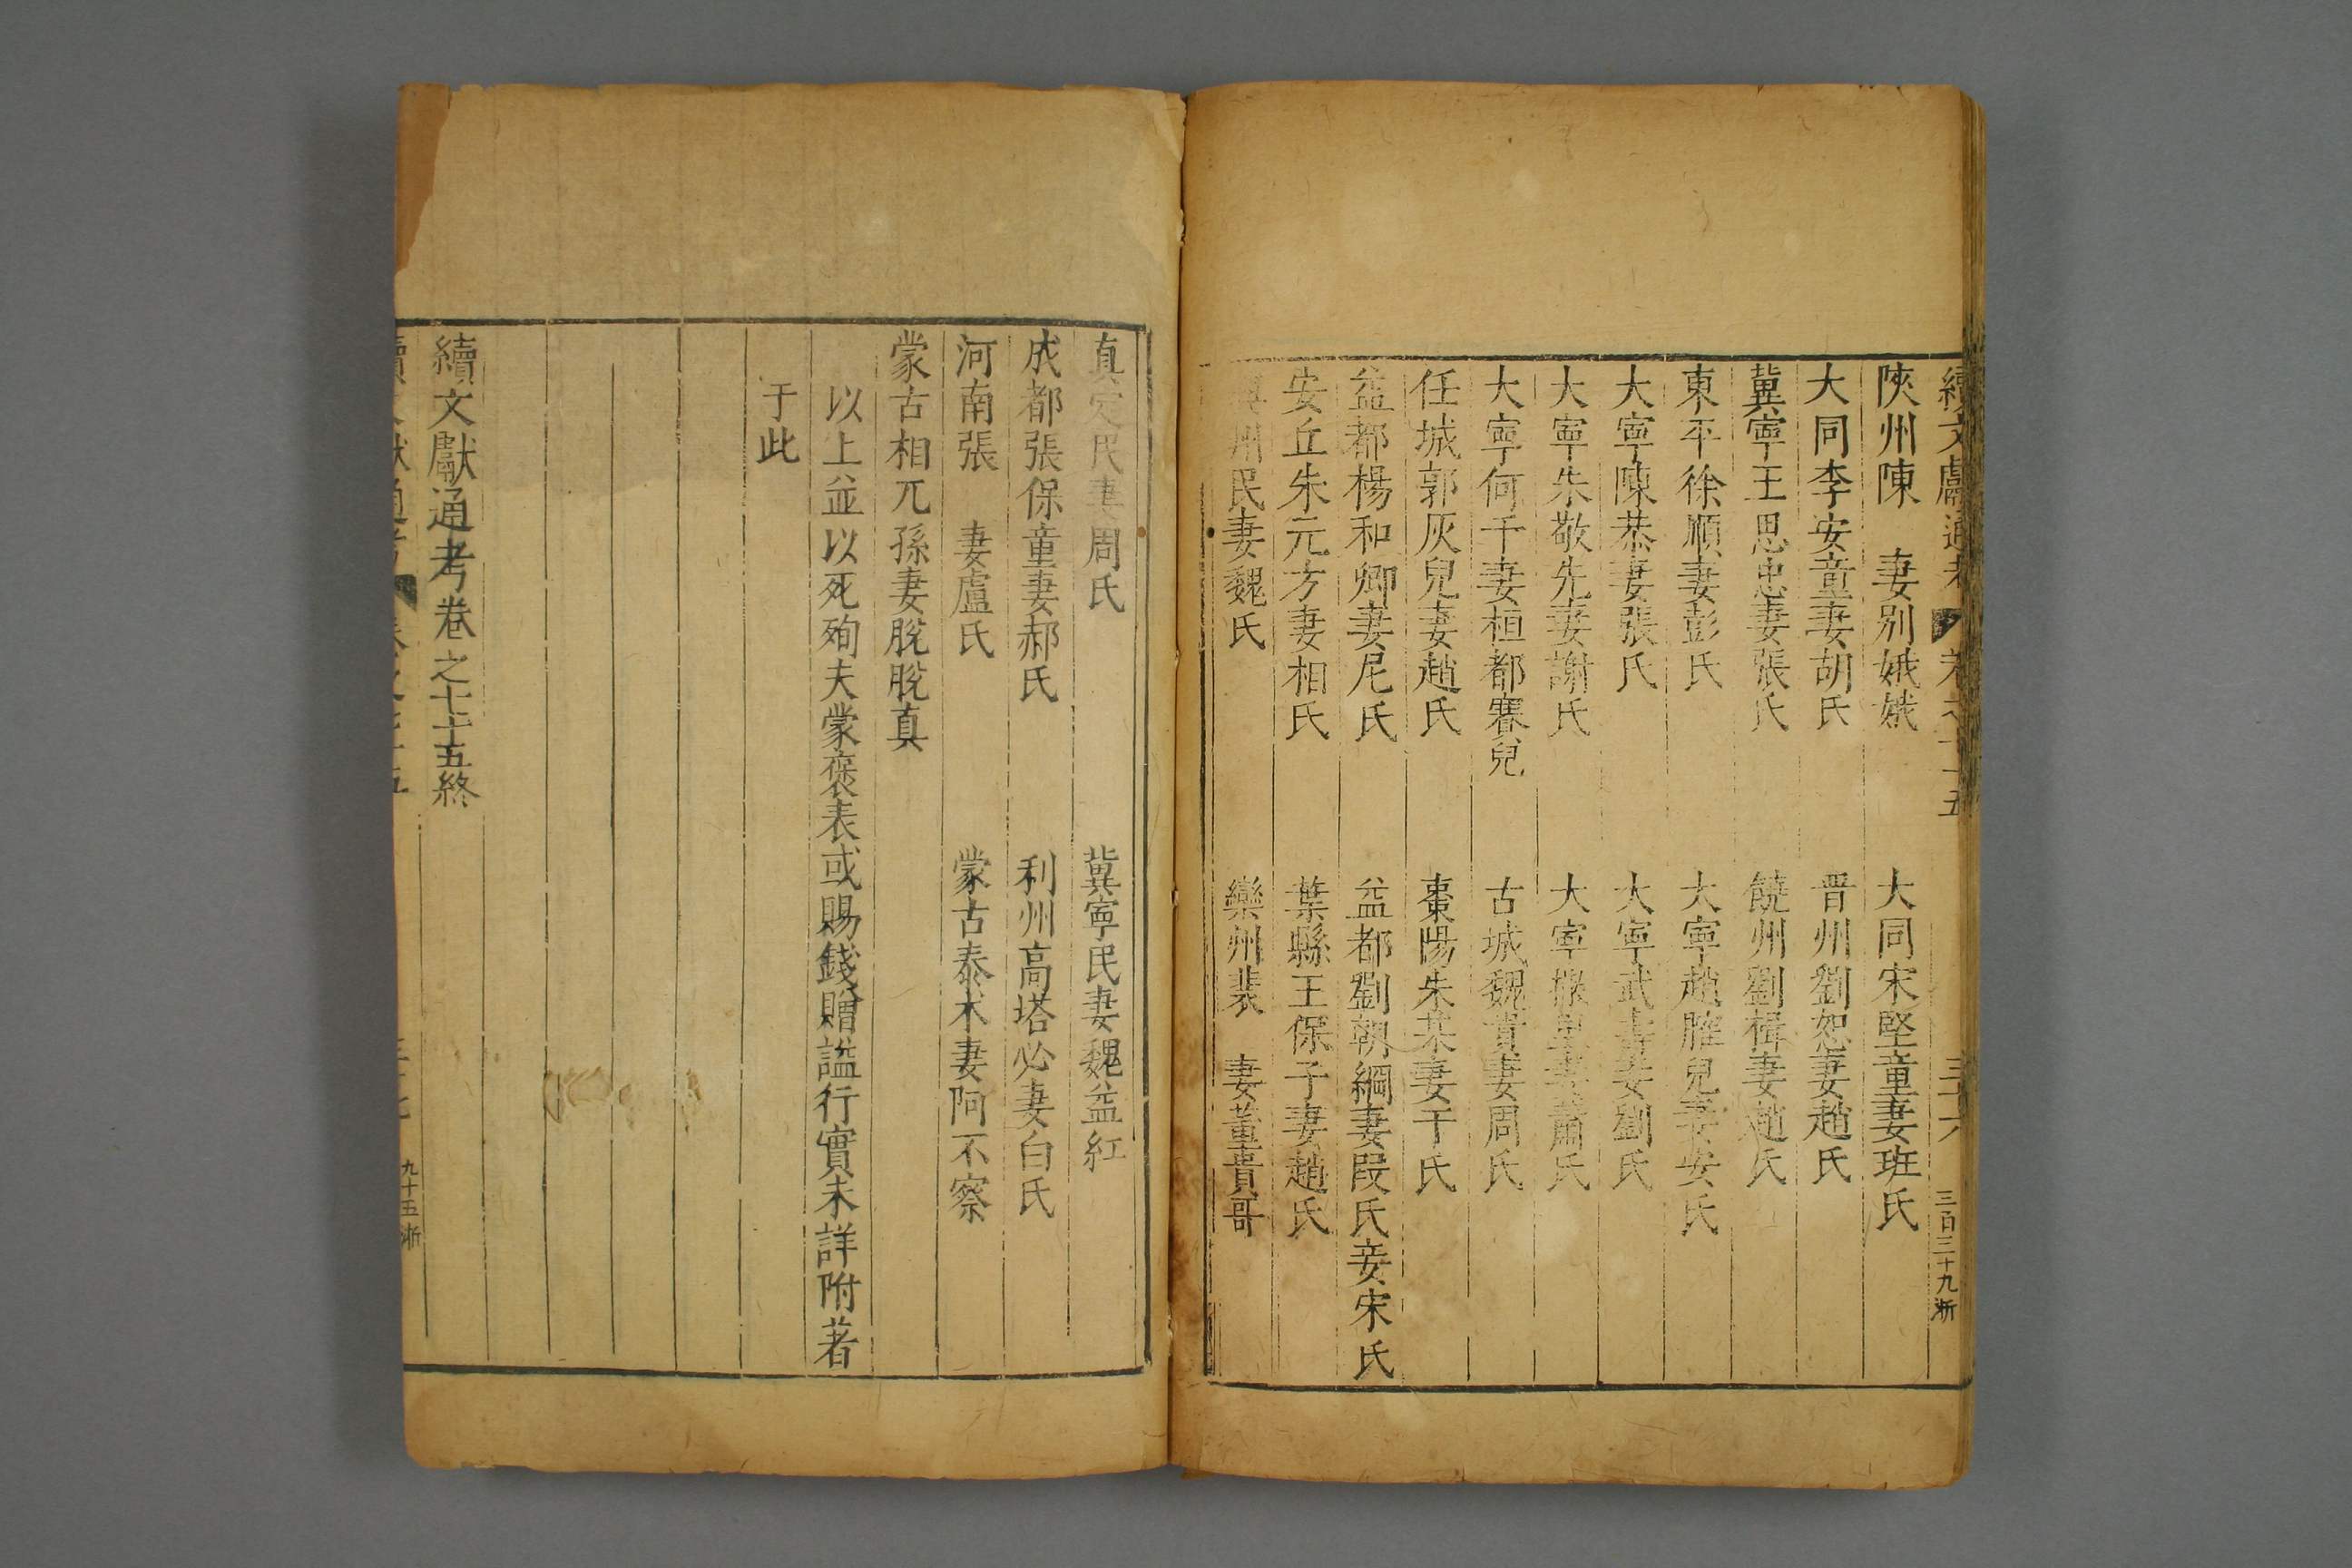 續文獻通考 卷之七十五 三十六 三百三十九 浙
陜州陳 妻別娥娥 大同宋堅童妻班氏
大同李安童妻胡氏 晋州劉恕妻趙氏
冀寧王思忠妻張氏 饒州劉楫妻趙氏
東平徐順妻彭氏 大寧趙脽兒妻安氏
大寧陳恭妻張氏 大寧武壽妻劉氏
大寧朱敬先妻謝氏 大寧 妻蕭氏
大寧何千妻桓都賽兒 古城魏貴妻周氏
任城郭灰兒妻趙氏 棗陽朱某妻干氏
益都楊和卿妻尼氏 益都劉朝綱妻段氏妾宋氏
安丘朱元方妻相氏 葉縣王保子妻趙氏
州民妻魏氏 欒州裴 妻董貴哥
真定民妻周氏 冀寧民妻魏益紅
成都張保童妻郝氏 利州高塔必妻白氏
河南張 妻盧氏 蒙古泰术妻阿不察
蒙古相兀孫妻脫脫真
以上並以死殉夫蒙褒表或賜錢贈謚行實未詳附著
于此
續文獻通考卷之七十五終
續文獻通考 卷之七十五 三十七 九十五 浙